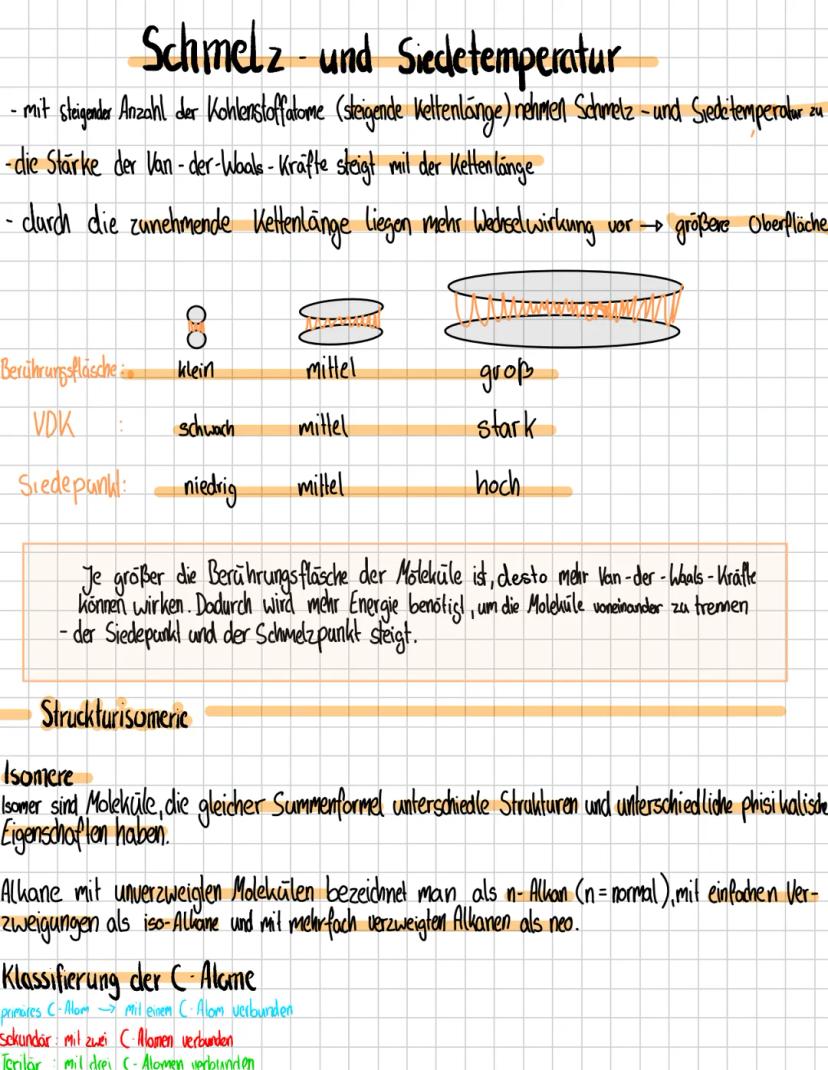 Schmelz - und Siedetemperatur
- mit steigender Anzahl der Kohlenstoffatome (steigende Kettenlänge) nehmen Schmelz - und Siedetemperatur zu
- die Stärke der Van - der - Waals - Kräfte steigt mit der Kettenlänge
- durch die zunehmende Kettenlänge liegen mehr Wechselwirkung vor → größere Oberfläche
Berührungsfläsche: klein mittel groß
VDK : schwach mittel stark
Siedepunkt: niedrig mittel hoch
Je größer die Berührungsfläsche der Moleküle ist, desto mehr Van - der - Waals - Kräfte
können wirken. Dadurch wird mehr Energie benötigt, um die Moleküle voneinander zu trennen
- der Siedepunkt und der Schmelzpunkt steigt.
Struckturisomerie
Isomere
Isomer sind Moleküle, die gleicher Summenformel unterschiedle Strukturen und unterschiedliche phisikalische
Eigenschaften haben.
Alkane mit unverzweigten Molekülen bezeichnet man als n- Alkan (n = normal), mit einfachen Ver-
zweigungen als iso-Alkane und mit mehrfach verzweigten Alkanen als neo.
Klassifierung der C - Atome
primäres C-Atom → mit einem C-Atom verbunden
sekundär : mit zwei C-Atomen verbunden
Tertiär : mit drei C - Atomen verbunden